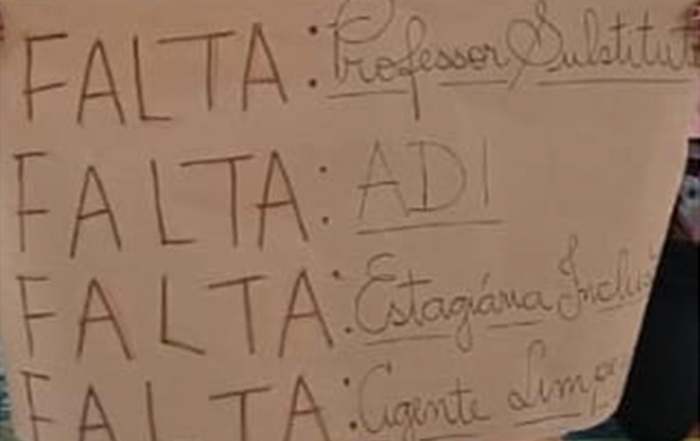 FALTA: Professor Substitut
FALTA: ADI
FALTA: Estagiária Inclus
FALTA: Agente Limpe